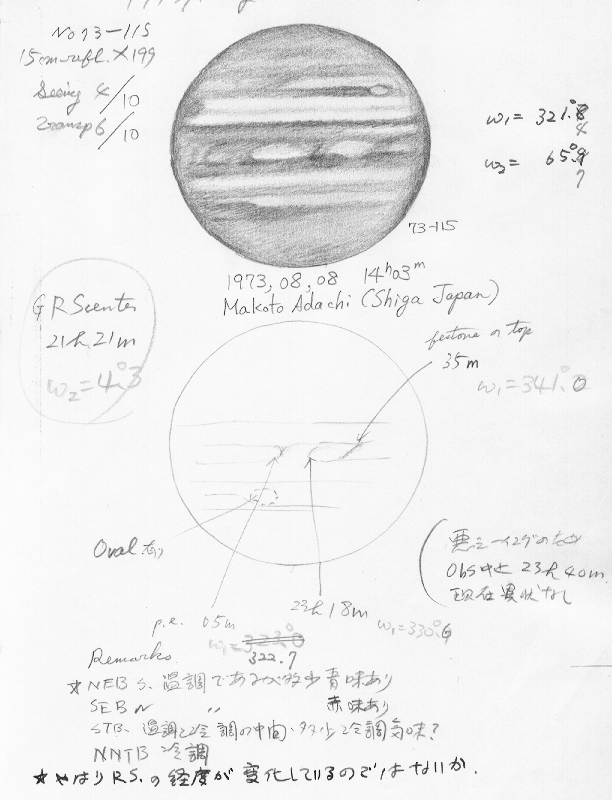 No 73-115
15cm refl. ×199
Seeing 4/10
Transp 6/10
ω1= 321.°4
ω2= 65.°7
73-115
1973, 08, 08 14h03m
Makoto Adachi (Shiga Japan)
GRS center
21h 21m
ω2=4.°3
festone on top
35m
ω1=341.°0
Oval
悪シーイングのため
Obs中止 23h 40m
現在異状なし
p.e. 05m
23h 18m
ω1=323.°0
322.7
ω1=330.°6
Remarks
☆ NEB S. 温調であるが多少青味あり
SEB N 〃 赤味あり
STB、温調と冷調の中間・多少冷調気味?
NNTB 冷調
☆ やはりRS.の経度が変化しているのではないか.